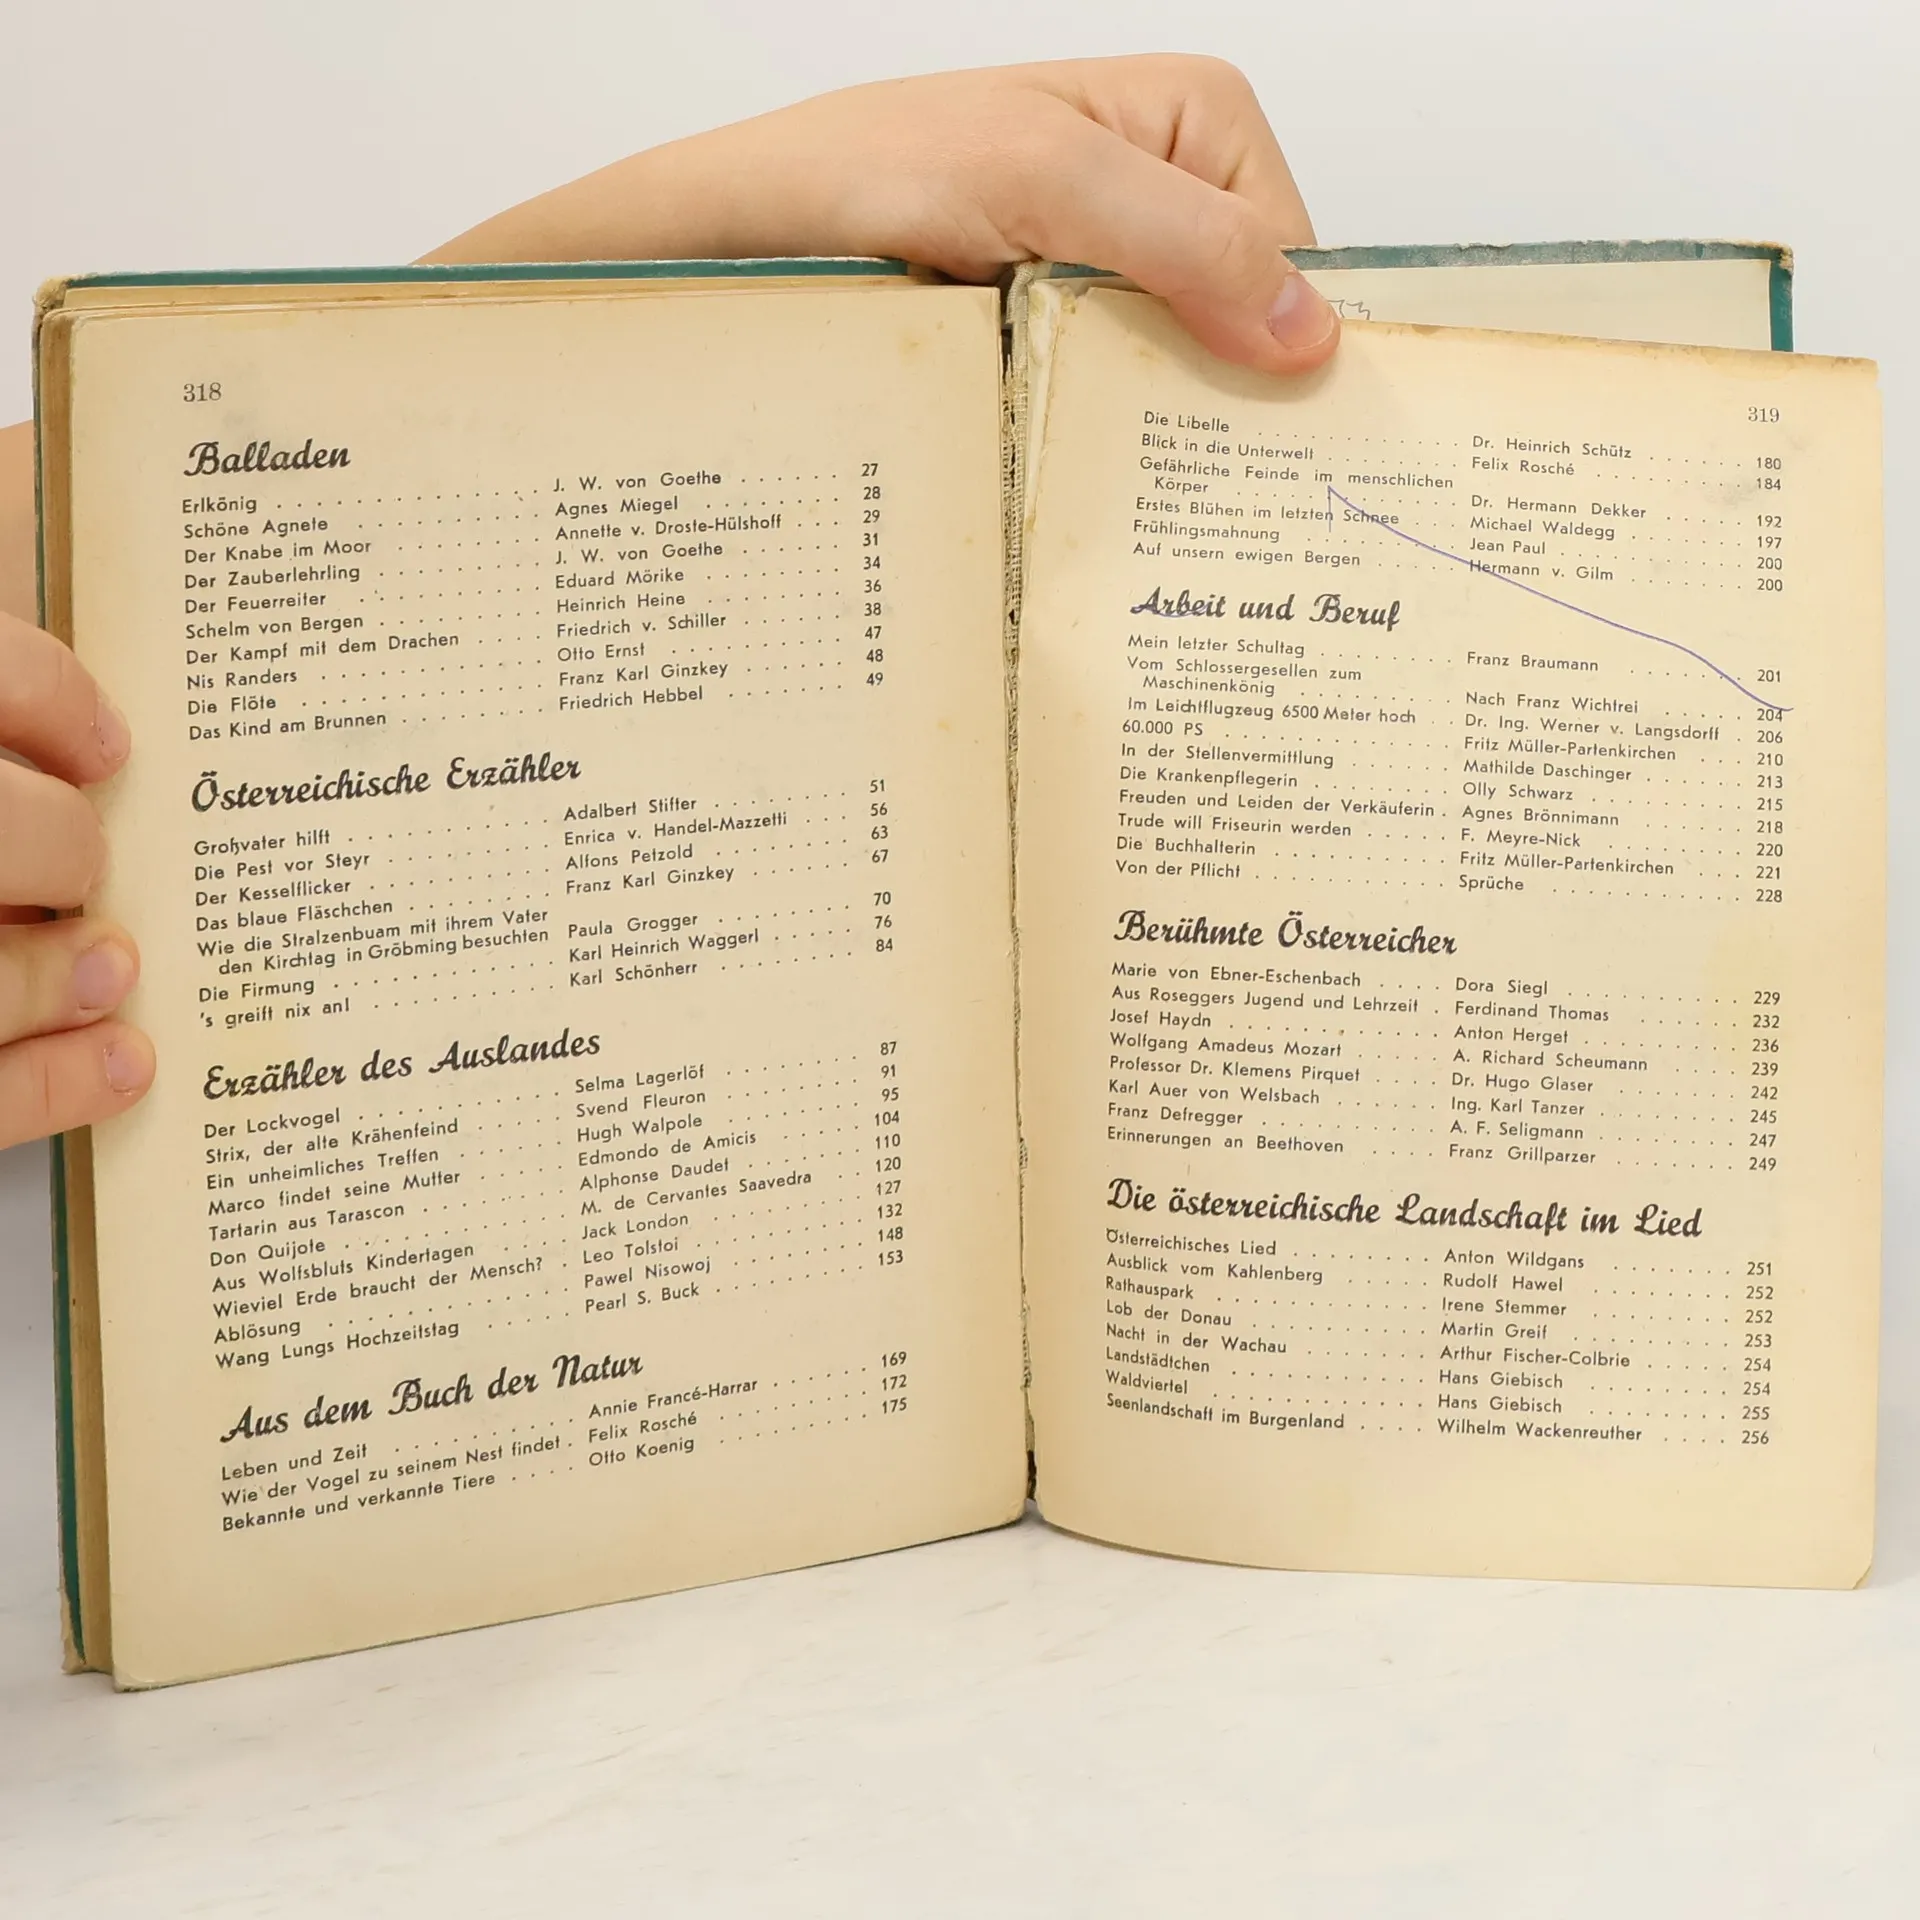 318
Balladen
Erlkönig . . . . . . . . . . . . . J. W. von Goethe . . . . . . 27
Schöne Agnete . . . . . . . . . . Agnes Miegel . . . . . . . 28
Der Knabe im Moor . . . . . . . . Annette v. Droste-Hülshoff . . . 29
Der Zauberlehrling . . . . . . . . . J. W. von Goethe . . . . . . 31
Der Feuerreiter . . . . . . . . . . Eduard Mörike . . . . . . . 34
Schelm von Bergen . . . . . . . . . Heinrich Heine . . . . . . . 36
Der Kampf mit dem Drachen . . . . Friedrich v. Schiller . . . . . . 38
Nis Randers . . . . . . . . . . . Otto Ernst . . . . . . . . . 47
Die Flöte . . . . . . . . . . . . Franz Karl Ginzkey . . . . . . 48
Das Kind am Brunnen . . . . . . . . Friedrich Hebbel . . . . . . . 49
Österreichische Erzähler
Großvater hilft . . . . . . . . . . . Adalbert Stifter . . . . . . . . 51
Die Pest vor Steyr . . . . . . . . . Enrica v. Handel-Mazzetti . . . 56
Der Kesselflicker . . . . . . . . . . Alfons Petzold . . . . . . . . 63
Das blaue Fläschchen . . . . . . . . Franz Karl Ginzkey . . . . . . 67
Wie die Stralzenbuam mit ihrem Vater
den Kirchtag in Gröbming besuchten Paula Grogger . . . . . . . . 70
Die Firmung . . . . . . . . . . . Karl Heinrich Waggerl . . . . . 76
's greift nix an! . . . . . . . . . . Karl Schönherr . . . . . . . 84
Erzähler des Auslandes
Der Lockvogel . . . . . . . . . . . Selma Lagerlöf . . . . . . . 87
Strix, der alte Krähenfeind . . . . . Svend Fleuron . . . . . . . 91
Ein unheimliches Treffen . . . . . . Hugh Walpole . . . . . . . 95
Marco findet seine Mutter . . . . . Edmondo de Amicis . . . . . 104
Tartarin aus Tarascon . . . . . . . . Alphonse Daudet . . . . . . . 110
Don Quijote . . . . . . . . . . . M. de Cervantes Saavedra . . 120
Aus Wolfsbluts Kindertagen . . . . Jack London . . . . . . . . 127
Wieviel Erde braucht der Mensch? . Leo Tolstoi . . . . . . . . . 132
Ablösung . . . . . . . . . . . . Pawel Nisowoj . . . . . . . 148
Wang Lungs Hochzeitstag . . . . . Pearl S. Buck . . . . . . . . 153
Aus dem Buch der Natur
Leben und Zeit . . . . . . . . . . Annie Francé-Harrar . . . . . . 169
Wie der Vogel zu seinem Nest findet . Felix Rosché . . . . . . . . 172
Bekannte und verkannte Tiere . . . . Otto Koenig . . . . . . . . 175
319
Die Libelle . . . . . . . . . . . . Dr. Heinrich Schütz . . . . . . 180
Blick in die Unterwelt . . . . . . . . Felix Rosché . . . . . . . . . 184
Gefährliche Feinde im menschlichen
Körper . . . . . . . . . . . . Dr. Hermann Dekker . . . . . 192
Erstes Blühen im letzten Schnee . . . Michael Waldegg . . . . . . . 197
Frühlingsmahnung . . . . . . . . Jean Paul . . . . . . . . . . 200
Auf unsern ewigen Bergen . . . . . Hermann v. Gilm . . . . . . . 200
Arbeit und Beruf
Mein letzter Schultag . . . . . . . . Franz Braumann . . . . . . . 201
Vom Schlossergesellen zum
Maschinenkönig . . . . . . . . . Nach Franz Wichtrei . . . . . 204
Im Leichtflugzeug 6500 Meter hoch . . Dr. Ing. Werner v. Langsdorff . 206
60.000 PS . . . . . . . . . . . . Fritz Müller-Partenkirchen . . . 210
In der Stellenvermittlung . . . . . . Mathilde Daschinger . . . . . 213
Die Krankenpflegerin . . . . . . . . Olly Schwarz . . . . . . . . . 215
Freuden und Leiden der Verkäuferin . Agnes Brönnimann . . . . . . 218
Trude will Friseurin werden . . . . . F. Meyre-Nick . . . . . . . . 220
Die Buchhalterin . . . . . . . . . . Fritz Müller-Partenkirchen . . . 221
Von der Pflicht . . . . . . . . . . . Sprüche . . . . . . . . . . 228
Berühmte Österreicher
Marie von Ebner-Eschenbach . . . . Dora Siegl . . . . . . . . . . 229
Aus Roseggers Jugend und Lehrzeit . Ferdinand Thomas . . . . . . 232
Josef Haydn . . . . . . . . . . . . Anton Herget . . . . . . . . 236
Wolfgang Amadeus Mozart . . . . . A. Richard Scheumann . . . . 239
Professor Dr. Klemens Pirquet . . . . Dr. Hugo Glaser . . . . . . . 242
Karl Auer von Welsbach . . . . . . Ing. Karl Tanzer . . . . . . . 245
Franz Defregger . . . . . . . . . . A. F. Seligmann . . . . . . . . 247
Erinnerungen an Beethoven . . . . Franz Grillparzer . . . . . . . 249
Die österreichische Landschaft im Lied
Österreichisches Lied . . . . . . . . Anton Wildgans . . . . . . . 251
Ausblick vom Kahlenberg . . . . . Rudolf Hawel . . . . . . . . 252
Rathauspark . . . . . . . . . . . . Irene Stemmer . . . . . . . . 252
Lob der Donau . . . . . . . . . . Martin Greif . . . . . . . . . 253
Nacht in der Wachau . . . . . . . Arthur Fischer-Colbrie . . . . . 254
Landstädtchen . . . . . . . . . . . Hans Giebisch . . . . . . . . 254
Waldviertel . . . . . . . . . . . . Hans Giebisch . . . . . . . . 255
Seenlandschaft im Burgenland . . . . Wilhelm Wackenreuther . . . . 256